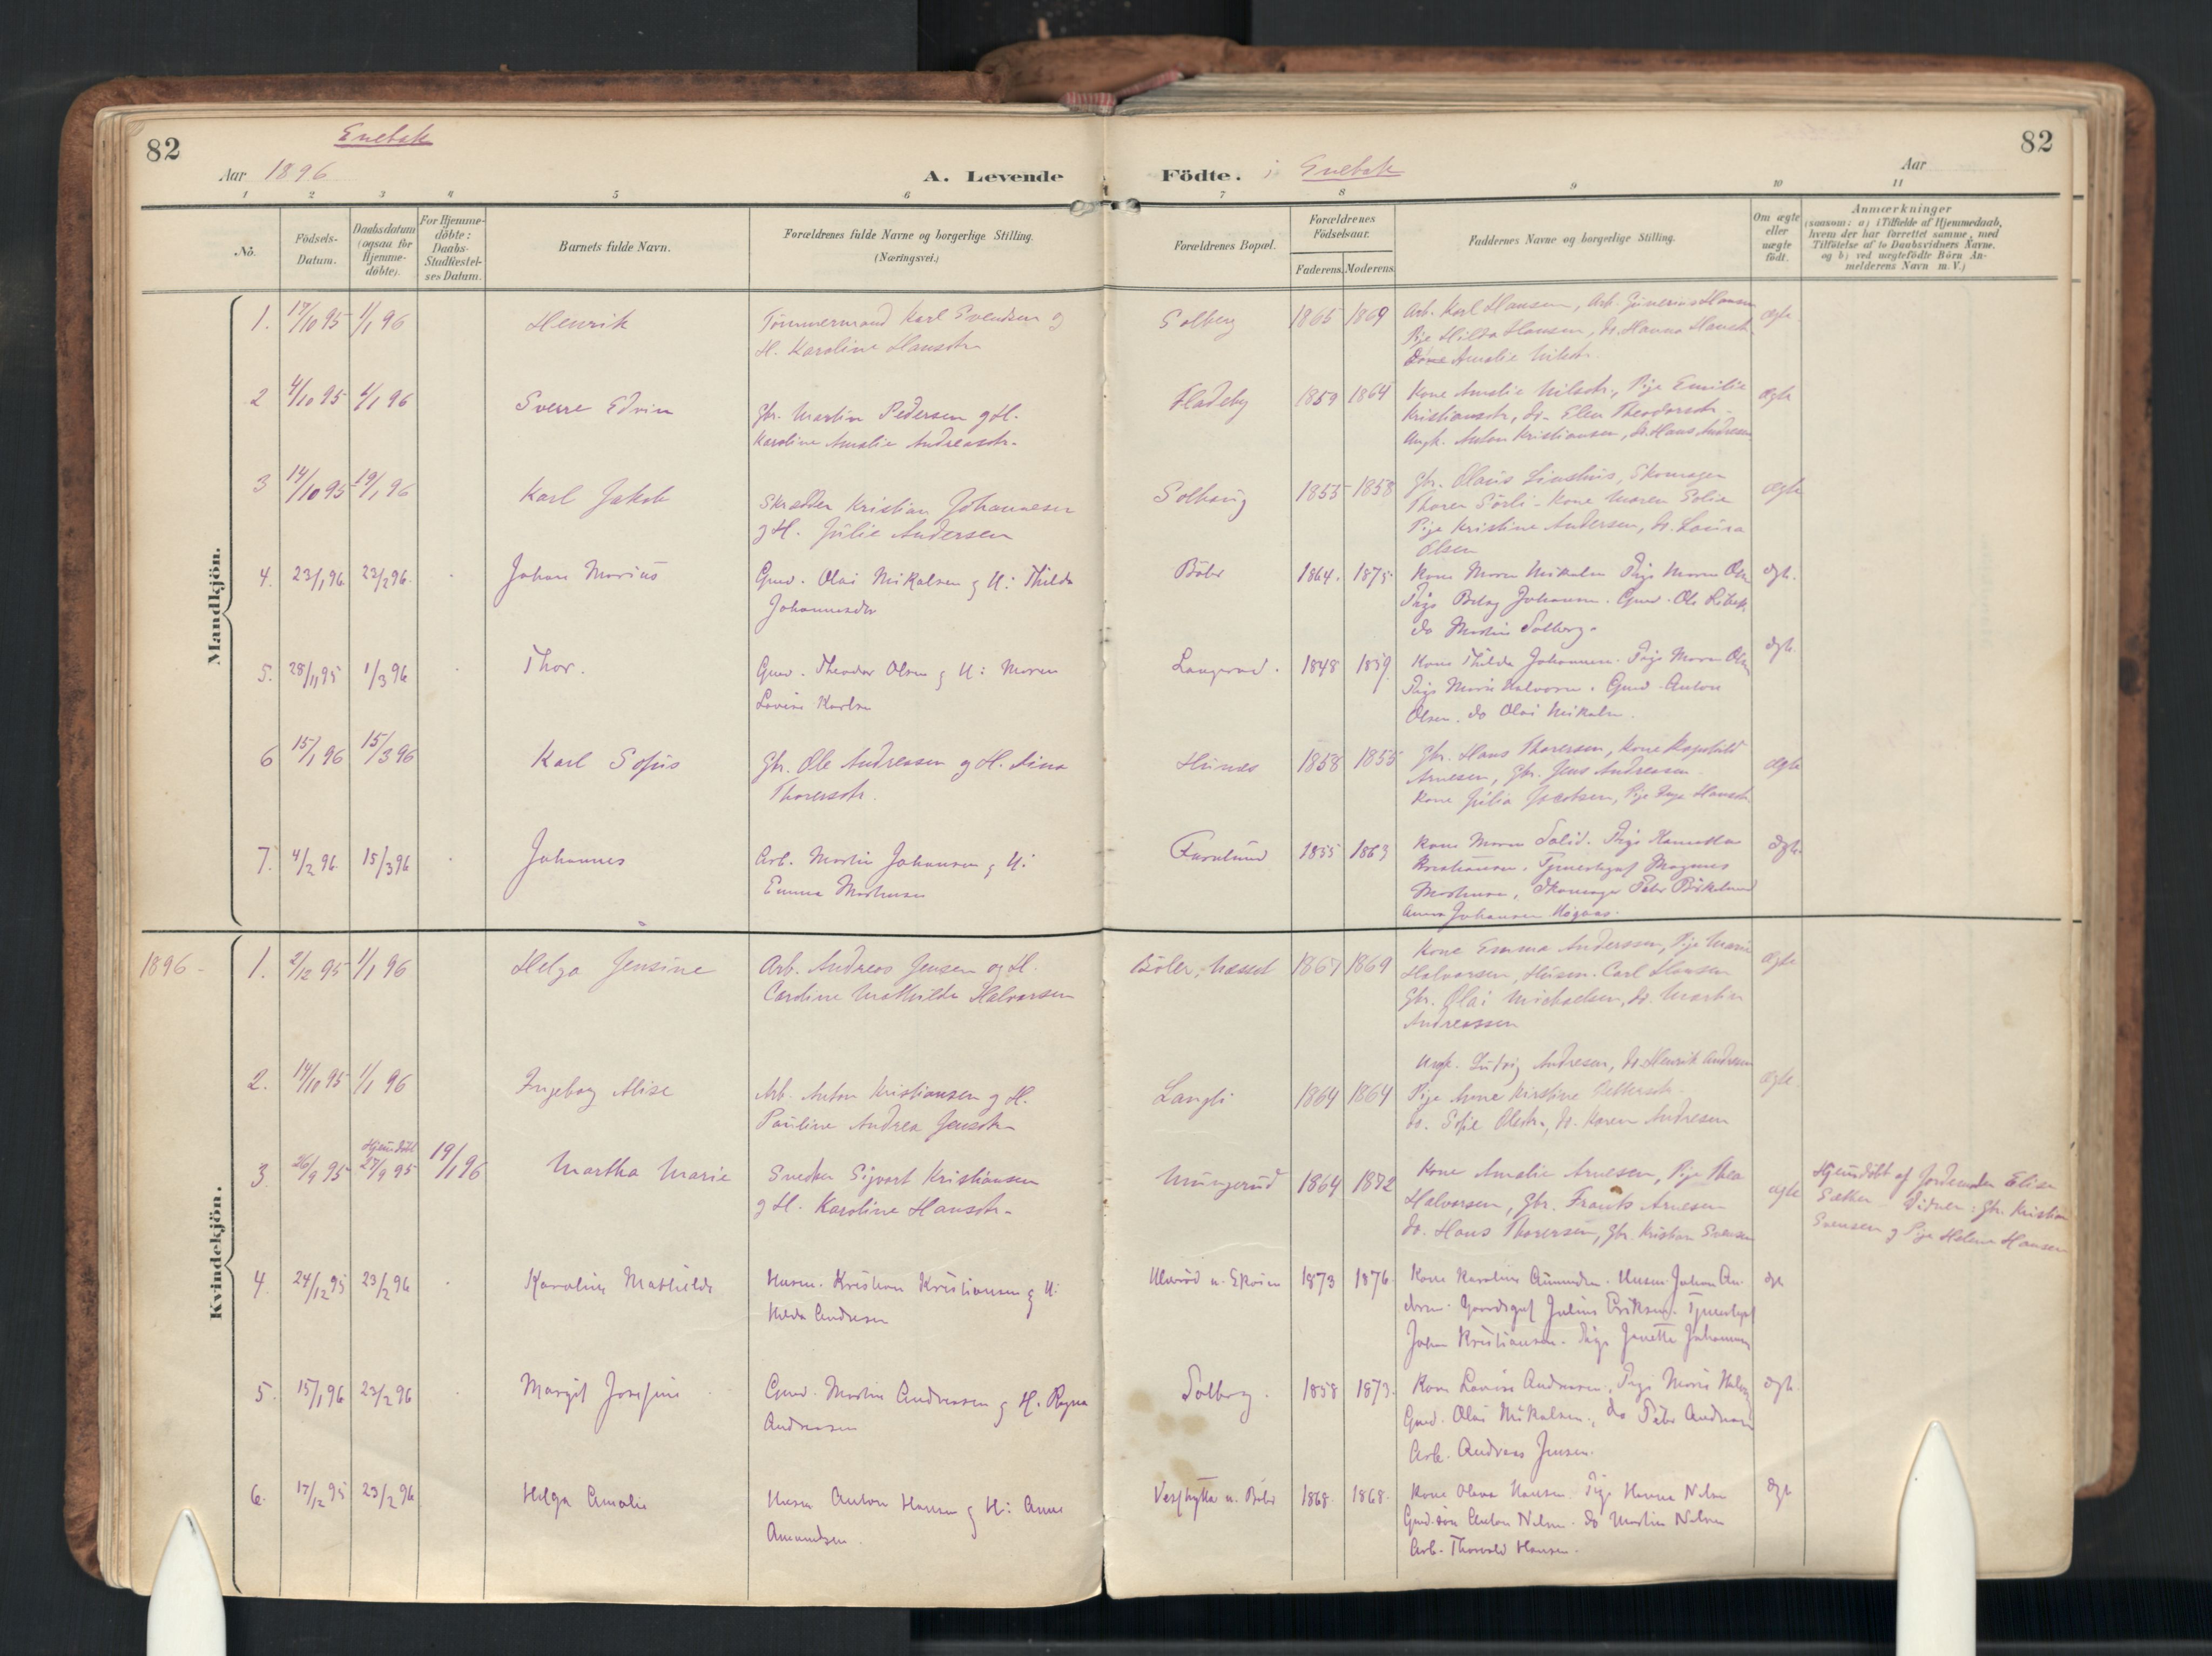 82
Enebak
Aar 1896
A. Levende
Födte. i Enebak
Aar
82
1 2 3 4 5 6 7 8 9 10 11
Nö.
Födsels-
Datum.
Daabsdatum
(ogsaa for
Hjemme-
döbte).
For Hjemme-
döbte:
Daabs-
Stadfæstel-
ses Datum.
Barnets fulde Navn.
Forældrenes fulde Navne og borgerlige Stilling.
(Næringsvei.)
Forældrenes Bopæl.
Forældrenes
Födselsaar.
Faderens. Moderens.
Faddernes Navne og borgerlige Stilling.
Om ægte
eller
uægte
födt.
Anmærkninger
(saasom: a) i Tilfælde af Hjemmedaab,
hvem der har forrettet samme, med
Tilföielse af to Daabsvidners Navne,
og b) ved uægtefödte Börn An-
melderens Navn m. V.)
Mandkjön.
1. 17/10 95 1/1 96 Henrik Tömmermand Karl Svendsen og
H. Karoline Hansdtr Solberg 1865 1869 Arb. Karl Hansen, Arb. Hansen
Pige Hilda Hansen, do. Hanna Hansdtr
Kone Amalie Nilsdtr. ægte
2 4/10 95 6/1 96 Sverre Edvin Gbr. Martin Pedersen og H.
Karoline Amalie Andreasdtr. Fladeby 1859 1864 Kone Amalie Nilsdtr., Pige Emilie
Kristiansdtr, do. Elen Theodorsdtr.
Ungk. Anton Kristiansen, do. Hans Andresen ægte
3 14/10 95 19/1 96 Karl Jakob Skrædder Kristian Johannesen
og H. Julie Andersen Solhaug 1855 1858 Gbr. Olaus Skomager
Thorer Sörli - Kone Maren Solie
Pige Kristine Andersen, do. Laura
Olsen ægte
4. 23/1 96 23/2 96. Johan Marius Gmd. Olai Mikalsen og H: Thilda
Johannesdtr Böler 1864. 1875. Kone Maren Mikalsen Pige Maren Olsen
Pige Johansen. Gmd. Ole
do Martin Solberg. ægte.
5. 28/11 95 1/3 96 Thor. Gmd. Theodor Olsen og H: Maren
Lovise Karlsen Langerud. 1848 1859. Kone Thilda Johannesen. Pige Maren Olsen
Pige Marie Halvorsen. Gmd. Anton
Olsen. do Olai Mikalsen. ægte.
6 15/1 96 15/3 96 Karl Sofus Gbr. Ole Andreasen og H. Lina
Thorersdtr. 1858 1855 Gbr. Hans Thorersen, Kone Ragnhild
Arnesen, Gbr. Jens Andreasen
Kone Julia Jacobsen, Pige Hansdtr ægte
7. 4/2 96. 15/3 96 Johannes Arb. Martin Johansen og H:
Emma Martinsen Furulund 1855 1863 Kone Maren Solid. Pige
Kristiansen. Tjenestegut Magnus
Martinsen, Skomager Peder
Anna Johansen ægte.
Kvindekjön.
1896 -
1. 2/12 95 1/1 96 Helga Jensine Arb. Andreas Jensen og H.
Caroline Mathilde Halvorsen Böler, Næsset 1867 1869 Kone Emma Anderssen, Pige Marie
Halvorsen, Husm. Carl Hansen
Gbr. Olai Michaelsen, do. Martin
Andreassen ægte
2. 14/10 95 1/1 96 Ingeborg Alise Arb. Anton Kristiansen og H.
Pauline Andrea Jensdtr. Langli 1864 1864 Ungk. Ludvig Andresen, do. Henrik Andresen
Pige Anne Kirstine
do. Sofie Olsdtr., do. Karen Andresen ægte.
3. 26/9 95 Hjemdöbt 27/9 95 19/1 96 Martha Marie Snedker Sigvart Kristiansen
og H. Karoline Hansdtr. Mungerud 1864 1872 Kone Amalie Arnesen, Pige Thea
Halvorsen, Gbr. Frants Arnesen
do. Hans Thorersen, Gbr. Kristian Svensen ægte Hjemdöbt af Jordemoder Elise
Sætker Vidner: Gbr. Kristian
Svensen og Pige Helene Hansen
4. 24/12 95 23/2 96 Karoline Mathilde Husm. Kristian Kristiansen og H:
Hilda Andresen 1873 1876 Kone Karoline Amundsen. Husm. Johan An-
dersen. Gaardsgut Julius Eriksen. Tjenestegut
Johan Kristiansen. Pige Janette Johannesen ægte
5. 15/1 96 23/2 96 Margit Josefine Gmd. Martin Andreasen og H. Ragna
Andreasen Solberg. 1858 1873. Kone Lovise Andreasen, Pige Marie
Gmd. Olai Mikalsen., do Peder Andreasen
Arb. Andreas Jensen. ægte.
6. 17/12 95 23/2 96 Helga Amalie Husm Anton Hansen og H: Anne
Amundsen. Vesthytta u. Böler 1868. 1868. Kone Olava Hansen. Pige Hanna Nilsen
Gmd.sön Anton Nilsen. do Martin Nilsen
Arb. Thorvald Hansen. ægte